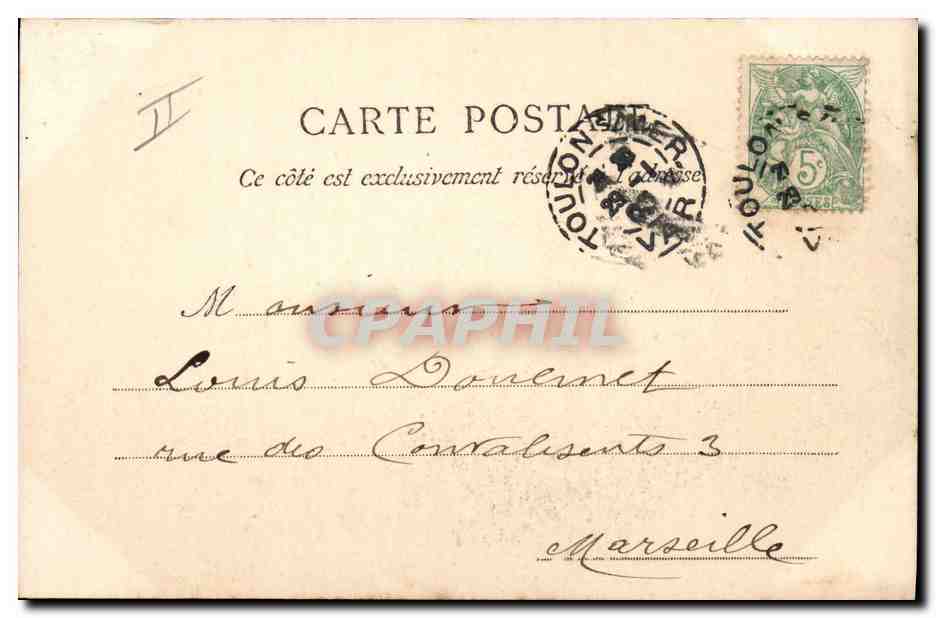 II
CARTE POSTALE
Ce côté est exclusivement réservé à l'adresse
TOULON S MER
VAR
TOULON
5c
Monsieur
CPAPHIL
Louis
rue des Convalesents 3
Marseille